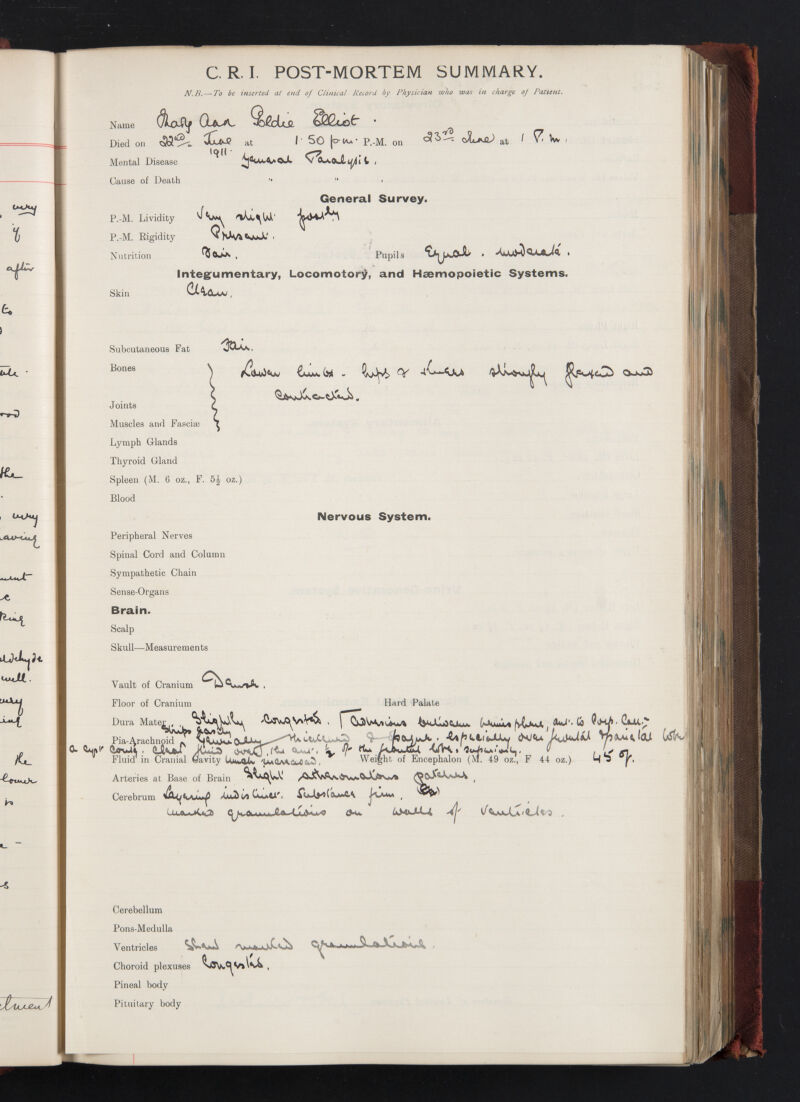 C. R. I. POST-MORTEM SUMMARY.
N.B.—To be inserted at end of Clinical Record by Physician who was in charge of Patient.
Name Mary Ann Goldie Elliot.
Died on 22nd June 1911 at 1.50 p.m. P.-M. on 23rd June at 1 P.m.
Mental Disease General Paralysis.
Cause of Death " " .
General Survey.
P.-M. Lividity Very slight postly
P.-M. Rigidity Present.
Nutrition Fair. Pupils Equal. moderate.
Integumentary, Locomotory, and Hæmopoietic Systems.
Skin Clean.
Subcutaneous Fat Fair.
Bones Lower limbs - hips & knees strongly flexed and
contracted.
Joints
Muscles and Fasciæ
Lymph Glands
Thyroid Gland
Spleen (M. 6 oz., F. 5½ oz.)
Blood
Nervous System.
Peripheral Nerves
Spinal Cord and Column
Sympathetic Chain
Sense-Organs
Brain.
Scalp
Skull—Measurements
Vault of Cranium Dense.
Floor of Cranium Hard Palate
Dura Mater Slightly congested. Adhesions between hemisphere, ant. to Corp. Call:
Strips easily
Pia-Arachnoid Generally thickened & opaque. especially over frontal & parietal lobe
clear fluid over the ant. ½ of the frontal lobe superiorly.
Fluid in Cranial Cavity much increased. Weight of Encephalon (M. 49 oz., F 44 oz.) 45 oz.
Arteries at Base of Brain Slight atheromatous patches.
Cerebrum Layering indistinct. Substance firm.
marked granulations on walls of Ventricles.
Cerebellum
Pons-Medulla
Ventricles Shew marked granulations.
Choroid plexuses Congested.
Pineal body
Pituitary body
very
if
after
to
the
very
aving
ment
aldehyde
well.
very
ing
he
lower